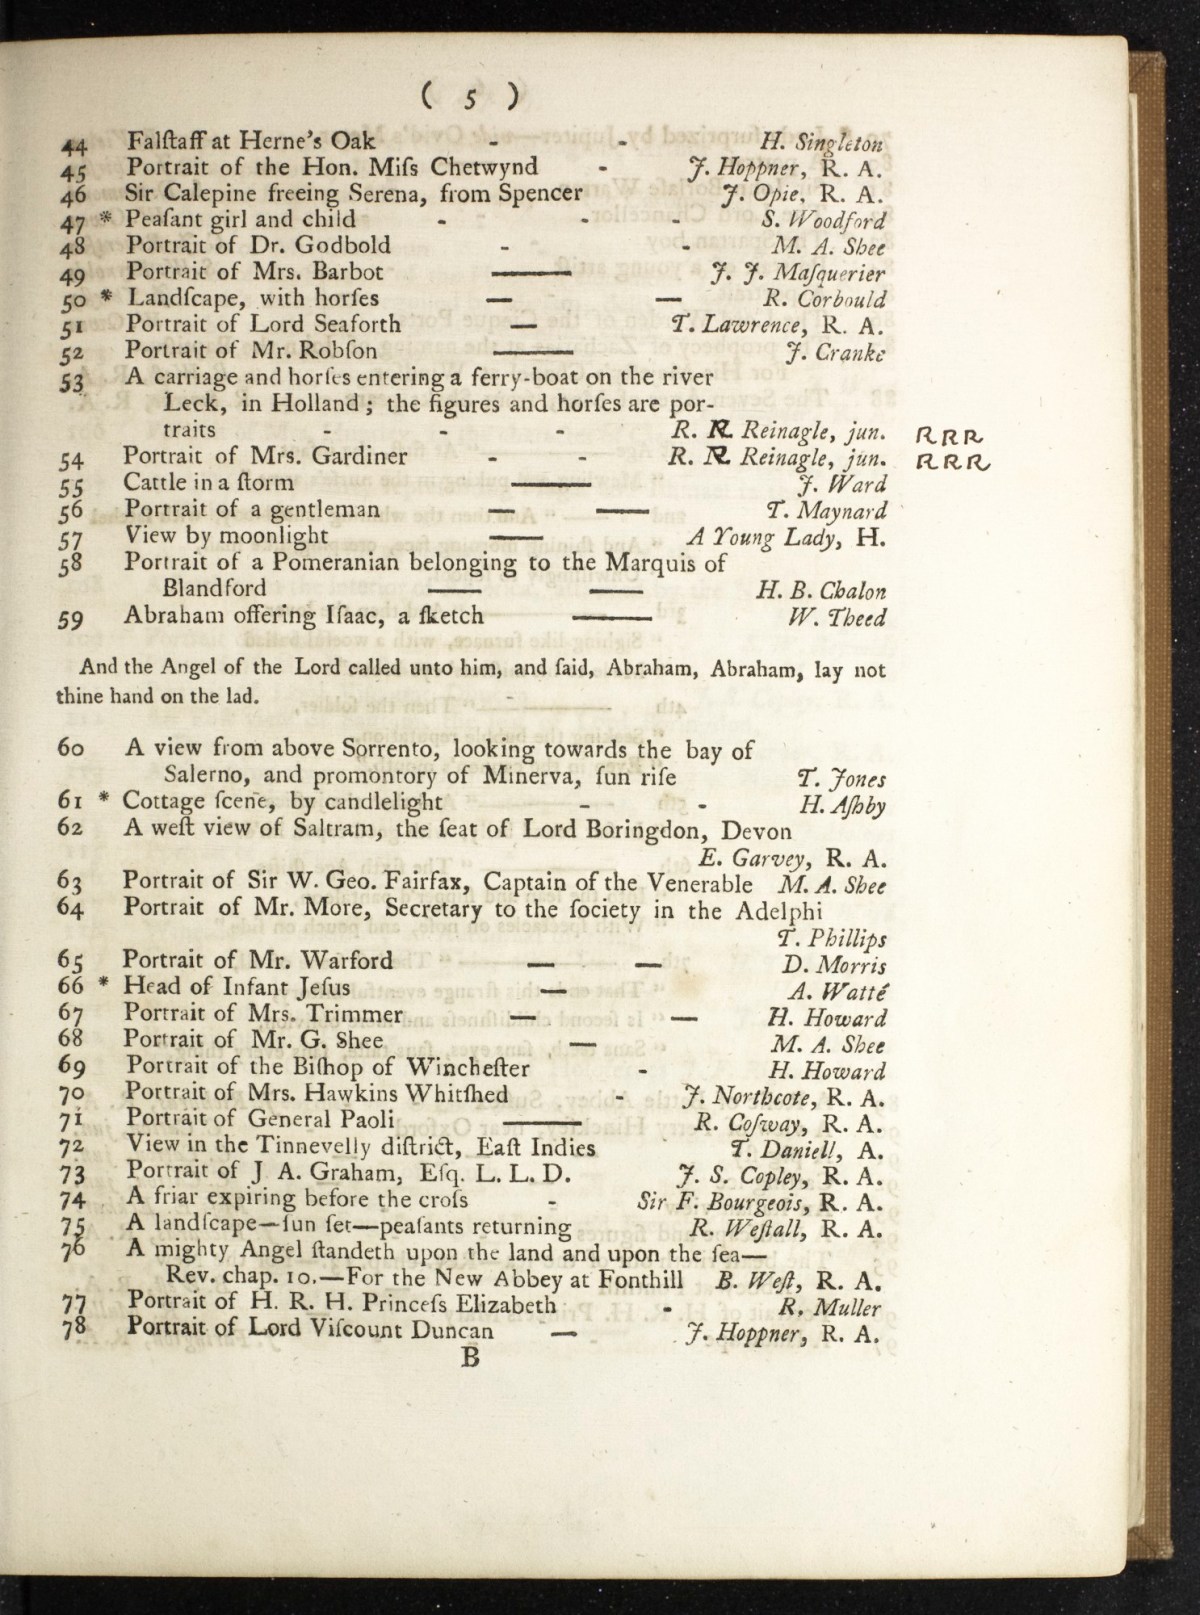 ( 5 )
44 Falſtaff at Herne's Oak - - H. Singleton
45 Portrait of the Hon. Miſs Chetwynd - J. Hoppner, R. A.
46 Sir Calepine freeing Serena, from Spencer J. Opie, R. A.
47 * Peaſant girl and child - - - S. Woodford
48 Portrait of Dr. Godbold - - M. A. Shee
49 Portrait of Mrs. Barbot —— J. J. Maſquerier
50 * Landſcape, with horſes — — R. Corbould
51 Portrait of Lord Seaforth — T. Lawrence, R. A.
52 Portrait of Mr. Robſon —— J. Cranke
53 A carriage and horſes entering a ferry-boat on the river
Leck, in Holland ; the figures and horſes are por-
traits - - - R. R. Reinagle, jun. RRR
54 Portrait of Mrs. Gardiner - - R. R. Reinagle, jun. RRR
55 Cattle in a ſtorm —— J. Ward
56 Portrait of a gentleman — —— T. Maynard
57 View by moonlight —— A Young Lady, H.
58 Portrait of a Pomeranian belonging to the Marquis of
Blandford —— —— H. B. Chalon
59 Abraham offering Iſaac, a ſketch —— W. Theed
And the Angel of the Lord called unto him, and ſaid, Abraham, Abraham, lay not
thine hand on the lad.
60 A view from above Sorrento, looking towards the bay of
Salerno, and promontory of Minerva, ſun riſe T. Jones
61 * Cottage ſcene, by candlelight - - H. Aſhby
62 A weſt view of Saltram, the ſeat of Lord Boringdon, Devon
E. Garvey, R. A.
63 Portrait of Sir W. Geo. Fairfax, Captain of the Venerable M. A. Shee
64 Portrait of Mr. More, Secretary to the ſociety in the Adelphi
T. Phillips
65 Portrait of Mr. Warford — — D. Morris
66 * Head of Infant Jeſus — A. Watté
67 Portrait of Mrs. Trimmer — — H. Howard
68 Portrait of Mr. G. Shee — M. A. Shee
69 Portrait of the Biſhop of Wincheſter - H. Howard
70 Portrait of Mrs. Hawkins Whitſhed - J. Northcote, R. A.
71 Portrait of General Paoli —— R. Coſway, R. A.
72 View in the Tinnevelly diſtrict, Eaſt Indies T. Daniell, A.
73 Portrait of J A. Graham, Eſq. L. L. D. J. S. Copley, R. A.
74 A friar expiring before the croſs - Sir F. Bourgeois, R. A.
75 A landſcape—ſun ſet—peaſants returning R. Weſtall, R. A.
76 A mighty Angel ſtandeth upon the land and upon the ſea—
Rev. chap. 10.—For the New Abbey at Fonthill B. Weſt, R. A.
77 Portrait of H. R. H. Princeſs Elizabeth - R. Muller
78 Portrait of Lord Viſcount Duncan — J. Hoppner, R. A.
B